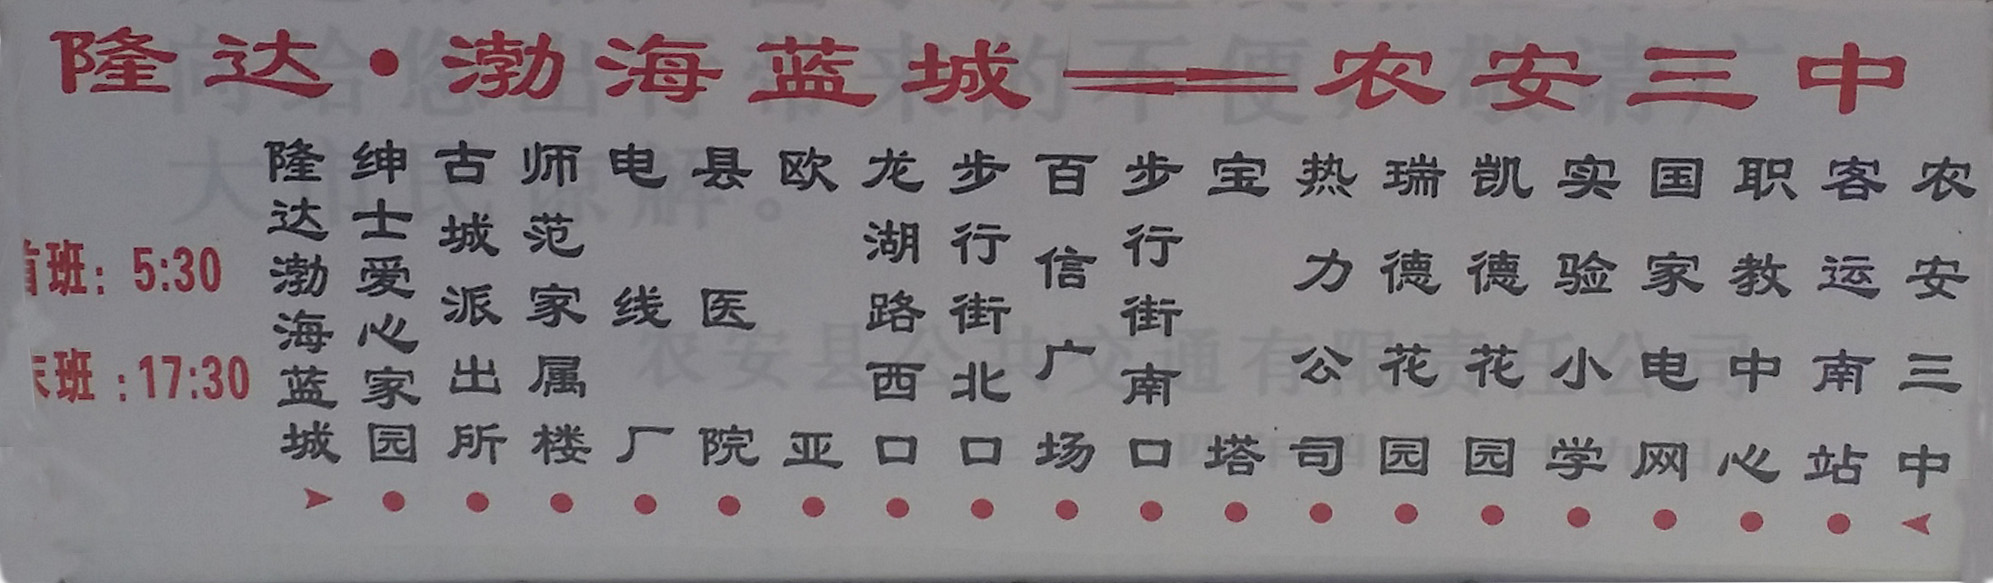 隆达·渤海蓝城 农安三中
班：5:30
班：17:30
隆达渤海蓝城
绅士爱心家园
古城派出所
师范家属楼
电线厂
县医院
欧亚
龙湖路西口
步行街北口
百信广场
步行街南口
宝塔
热力公司
瑞德花园
凯德花园
实验小学
国家电网
职教中心
客运南站
农安三中
向给您出行带来的不便，敬请广
大市民谅解。
农安县公共交通有限责任公司